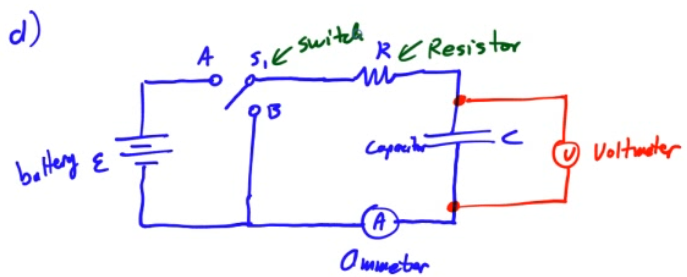 d)
A S₁ switch R Resistor
B
battery ε
Capacitor C
V Voltmeter
A
Ammeter